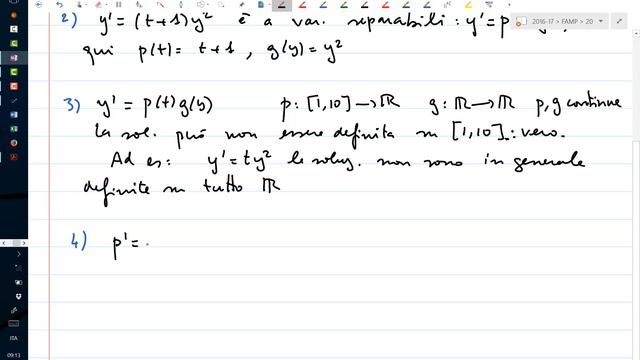 2016-17 > FAMP > 20
2) y' = (t+1)y² è a var. separabili: y' = p
qui p(t) = t+1, g(y) = y²
3) y' = p(t)g(y) p: [1,10] → ℝ g: ℝ → ℝ p, g continue
la sol. può non essere definita su [1,10]: vero.
Ad es: y' = ty² le soluz. non sono in generale
definite su tutto ℝ
4) p' =
ITA
09:13